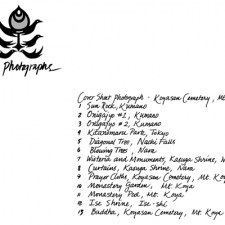 Photographs
Cover Sheet Photograph - Koyasan Cemetery, Mt
1 Sun Rock, Kumano
2 Onigajyo #1, Kumano
3 Onigajyo #2, Kumano
4 Kitanomaru Park, Tokyo
5 Diagonal Tree, Nachi Falls
6 Blowing Trees, Nara
7 Wisteria and Monuments, Kasuga Shrine, N
8 Curtains, Kasuga Shrine, Nara
9 Prayer Cloths, Koyasan Cemetery, Mt. Koy
10 Monastery Garden, Mt. Koya
11 Monastery Pool, Mt. Koya
12 Ise Shrine, Ise-shi
13 Buddha, Koyasan Cemetery, Mt. Koya